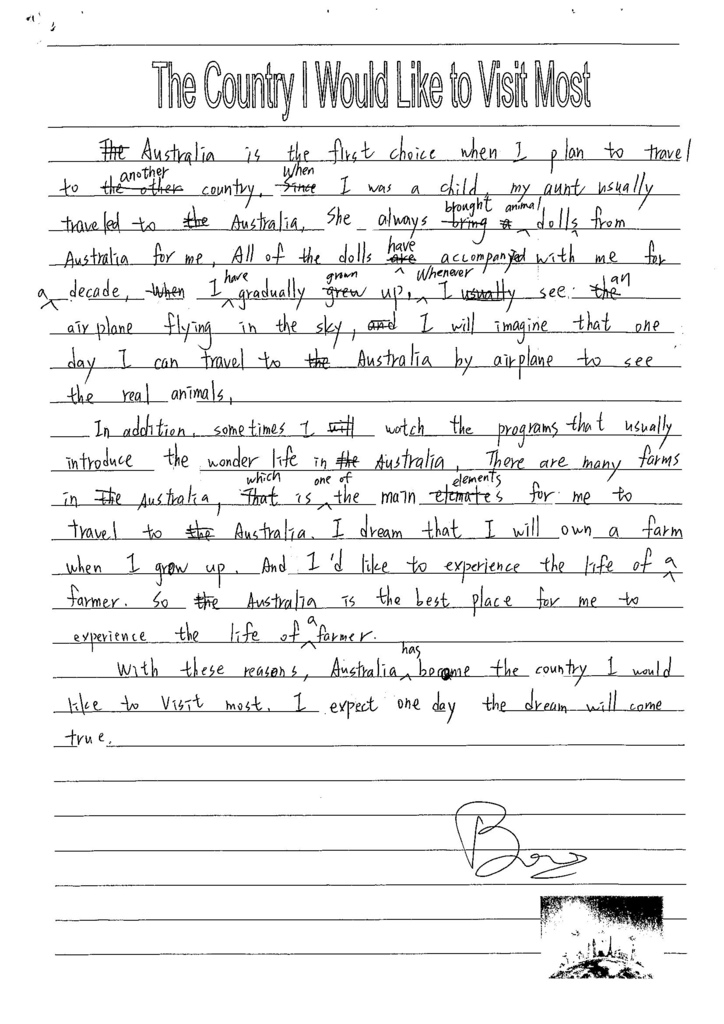 The Country I Would Like to Visit Most
The Australia is the first choice when I plan to travel
another When
to the other country. Since I was a child, my aunt usually
brought animal
traveled to the Australia, She always bring a dolls from
Australia for me, All of the dolls are have accompanyed with me for
have grown Whenever an
a decade, When I gradually grew up, I usually see the
airplane flying in the sky, and I will imagine that one
day I can travel to the Australia by airplane to see
the real animals,
In addition, sometimes I will watch the programs that usually
introduce the wonder life in the Australia, There are many farms
which one of elements
in the Australia, That is the main elemates for me to
travel to the Australia. I dream that I will own a farm
when I grow up. And I'd like to experience the life of a
farmer. So the Australia is the best place for me to
experience the life of a farmer.
has
With these reasons, Australia become the country I would
like to visit most. I expect one day the dream will come
true.